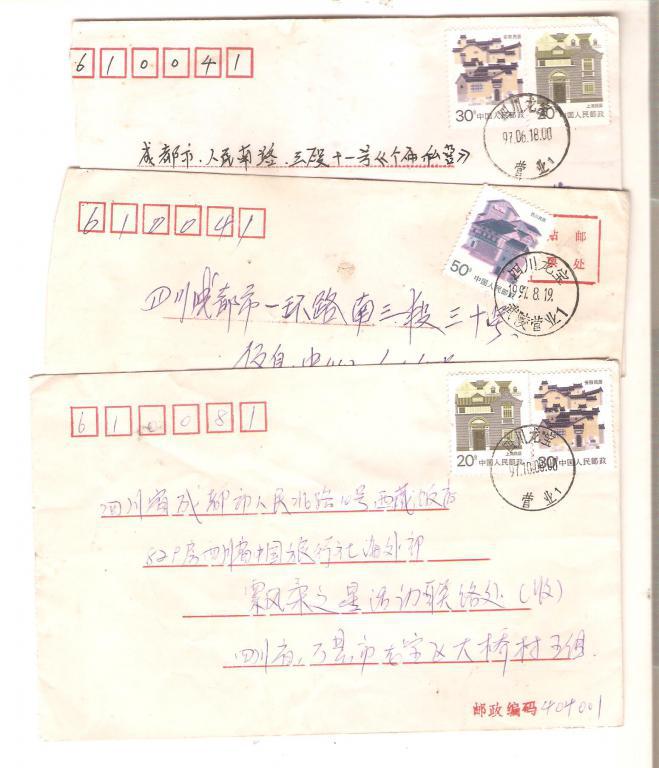 610041
30分 中国人民邮政
安徽民居
20分 中国人民邮政
上海民居
四川龙宝
97.06.18.00
营业1
成都市.人民南路.三段十一号《个
610041
50分 中国人民邮政
四川民居
邮
处
四川龙宝
1997.8.19.
营业1
四川成都市一环路南三段三十号
信息中心
610081
20分 中国人民邮政
上海民居
30分 中国人民邮政
安徽民居
四川龙宝
97.10.08.00
营业1
四川省成都市人民北路10号西藏饭店
529房四川省中国旅行社海外部
飘柔之星活动联络处(收)
四川省.万县市龙宝区大桥村五组
邮政编码404001